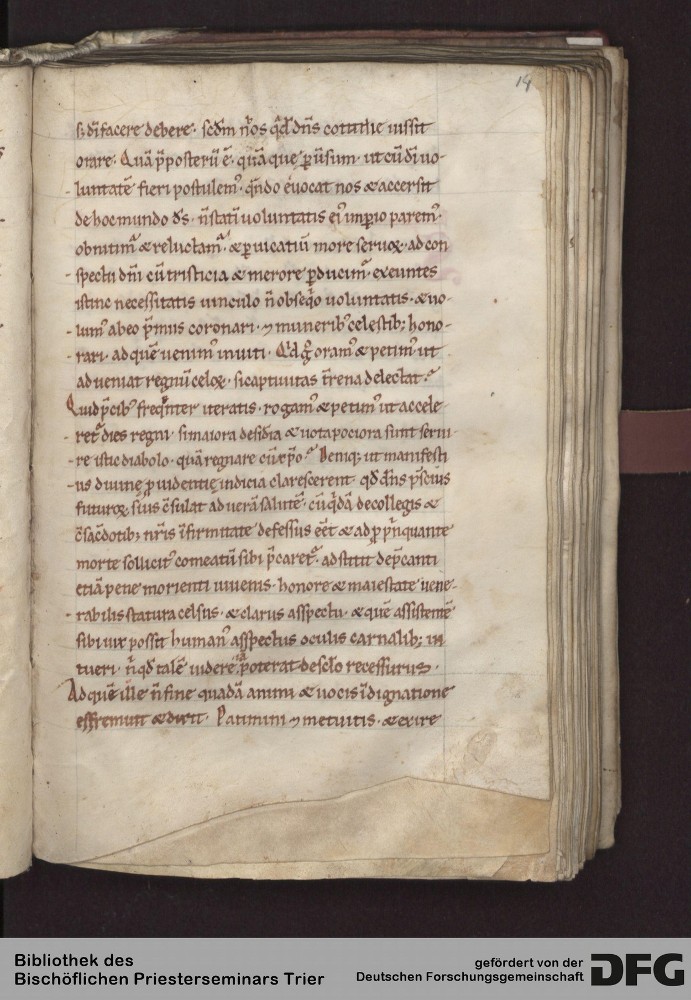 14
s; dī facere debere · scdm n̄os q̄d dn̄s cottidie iussit
orare · Quā p̄posterū ē · quāque ꝑuersum · ut cū dī uo-
luntatē fieri postulem᷒ · qn̄do euocat nos & accersit
de hoc mundo ds · n̄ statī uoluntatis ei᷒ imꝑio parem᷒ ·
obnitim᷒ & reluctam᷒ · & ꝑuicatiū more seruoꝝ · ad con
spectū dn̄i cū tristicia & merore ꝑducim᷒ · exeuntes
istinc necessitatis uinculo n̄ obseq̄o uoluntatis · & uo-
lum᷒ ab eo p̄mus coronari · ⁊ munerib᷒ celestib; hono-
rari · ad quē uenim᷒ inuiti · Q̄d g̊ oram᷒ & petim᷒ ut
adueniat regnū celoꝝ · si captiuitas t̄rena delectat ·
Quid p̄cib᷒ freq̄nter iteratis · rogam᷒ & petim᷒ ut accele-
ret dies regni · si maiora desidīa & uota pociora sunt serui-
re istic diabolo · quā regnare cū xp̄o · Deniq; ut manifesti
us diuine ꝓuidentię indicia clarescerent · qd dn̄s p̄scius
futuroꝝ suis c̄sulat ad uerā salutē · cū q̄dā de collegis &
c̄sacdotib; nr̄is īfirmitate defessus eēt & adꝓpīnquante
morte sollicit᷒ comeatū sibi p̄caret᷒ · adstitit dep̄canti
etiā pene morienti iuuenis · honore & maiestate uene-
rabilis statura celsus · & clarus asspectu · & quē assistentē
sibi uix possit human᷒ asspectus oculis carnalib; in
tueri · n̄ qd talē uidere poterat de sclo recessurus ·
Ad quē ille n̄ sine quadā animi & uocis īdignatione
effremuit & dixit · Patimini ⁊ metuitis · & exire
Bibliothek des
Bischöflichen Priesterseminars Trier
gefördert von der
Deutschen Forschungsgemeinschaft
DFG